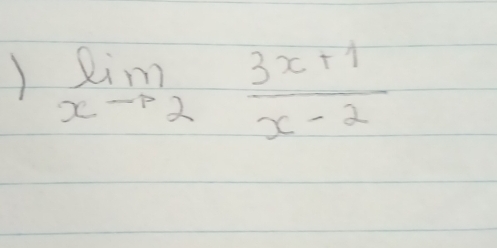 ) lim x→2 3x+1 / x-2